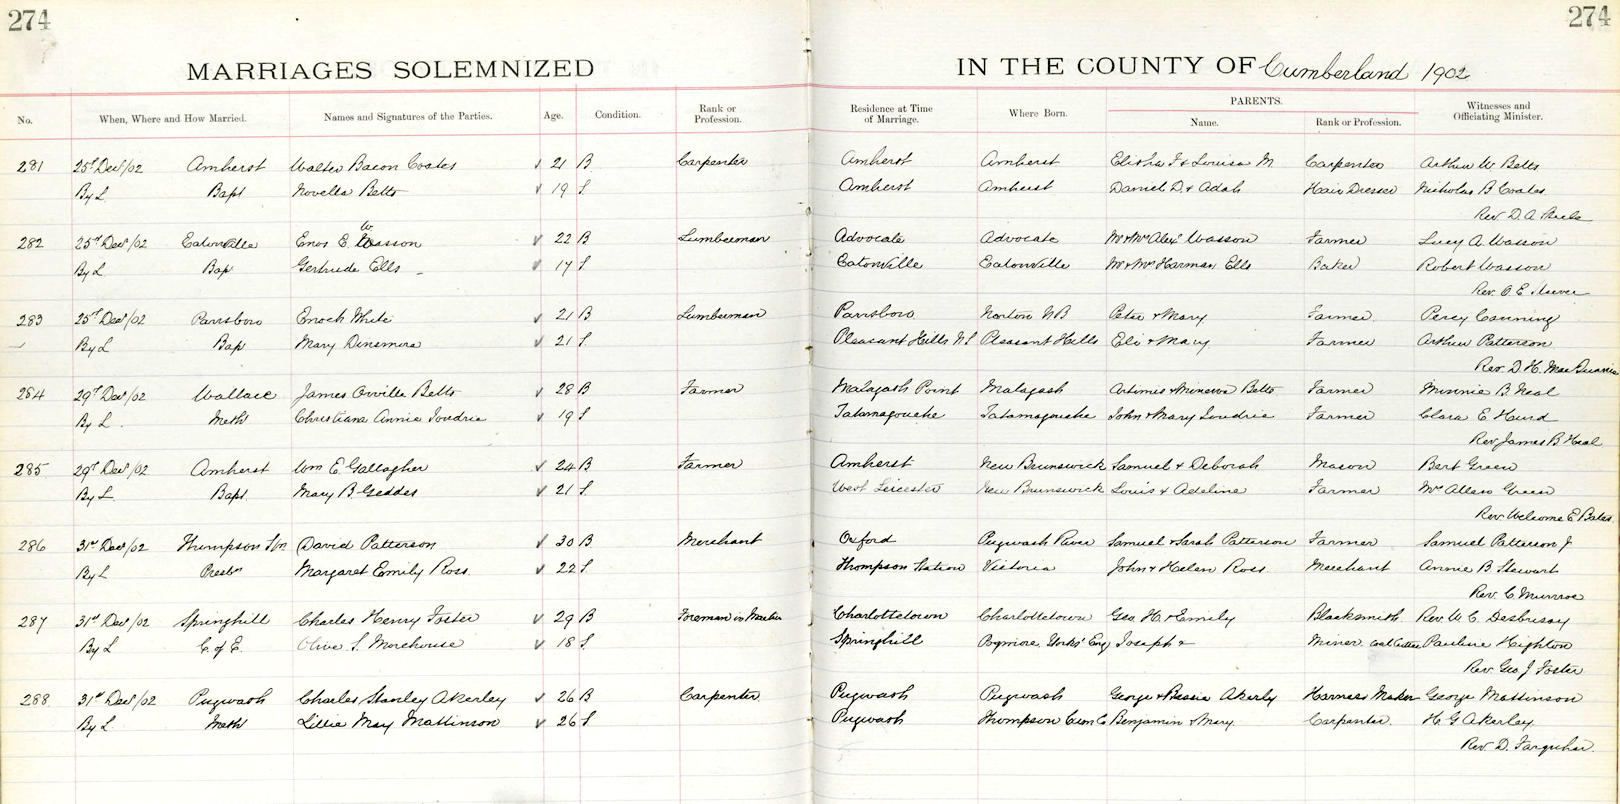 274
274
MARRIAGES SOLEMNIZED IN THE COUNTY OF Cumberland 1902
No. When, Where and How Married. Names and Signatures of the Parties. Age. Condition. Rank or Profession. Residence at Time of Marriage. Where Born. PARENTS. Name. Rank or Profession. Witnesses and Officiating Minister.
281 25th Decr/02 Amherst Walter Bacon Coates √ 21 B Carpenter Amherst Amherst Elisha F & Louisa M Carpenter Arthur W Betts
By L Bapt Novella Betts √ 19 S Amherst Amherst Daniel D. & Adah Hair Dresser Nicholas B Coates
Rev D. A. Steele
282 25th Decr/02 Eatonville Enos E. Wasson √ 22 B Lumberman Advocate Advocate Mr & Mrs Alexr Wasson Farmer Lucy A. Wasson
By L Bap Gertrude Ells √ 17 S Eatonville Eatonville Mr & Mrs Harman Ells Baker Robert Wasson
Rev. O. E. Steeves
283 25th Decr/02 Parrsboro Enoch White √ 21 B Lumberman Parrsboro Norton NB Peter & Mary Farmer Percy Canning
By L Bap Mary Dinsmore √ 21 S Pleasant Hills NS Pleasant Hills Eli & Mary Farmer Arthur Patterson
Rev. D. H. MacQuarrie
284 29th Decr/02 Wallace James Orville Betts √ 28 B Farmer Malagash Point Malagash Artimis & Minerva Betts Farmer Minnie B. Neal
By L. Meth Christiana Annie Toudrie √ 19 S Tatamagouche Tatamagouche John & Mary Toudrie Farmer Clara E Hurd
Rev James B Heal
285 29th Decr/02 Amherst Wm E. Gallagher √ 24 B Farmer Amherst New Brunswick Samuel & Deborah Mason Bert Green
By L. Bapt Mary B Geddes √ 21 S West Leicester New Brunswick Louis & Adeline Farmer Mrs Allen Green
Rev Welcome E Bates
286 31st Decr/02 Thompson Stn David Patterson √ 30 B Merchant Oxford Pugwash River Samuel & Sarah Patterson Farmer Samuel Patterson Jr
By L Presbn Margaret Emily Ross √ 22 S Thompson Station Victoria John & Helen Ross Merchant Annie B. Stewart
Rev. C. Munroe
287 31st Decr/02 Springhill Charles Henry Foster √ 29 B Foreman in Charlottetown Charlottetown Geo. H. & Emily Blacksmith Rev. W. C. Desbrisay
By L C. of E. Olive S. Morehouse √ 18 S Springhill Pogmore, Yorks' Eng Joseph & Miner Coal Cutter Pauline Highton
Rev. Geo J Foster
288 31st Decr/02 Pugwash Charles Stanley Akerley √ 26 B Carpenter Pugwash Pugwash George & Bessie Akerly Harness Maker George Mattinson
By L. Meth Lillia May Mattinson √ 26 S Pugwash Thompson Benjamin & Mary Carpenter H. G Akerley
Rev. D. Farquhar